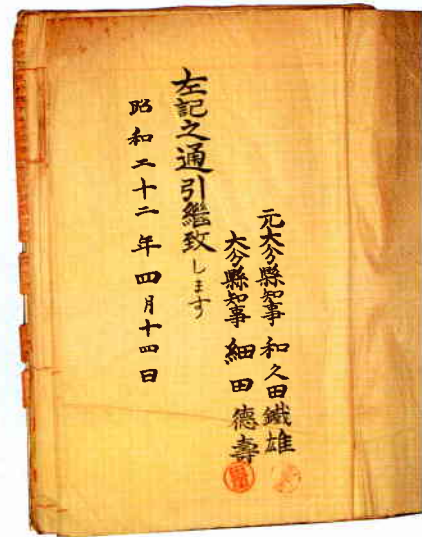 元大分縣知事 和久田鐵雄
大分縣知事 細田德壽
左記之通引繼致します
昭和二十二年四月十四日